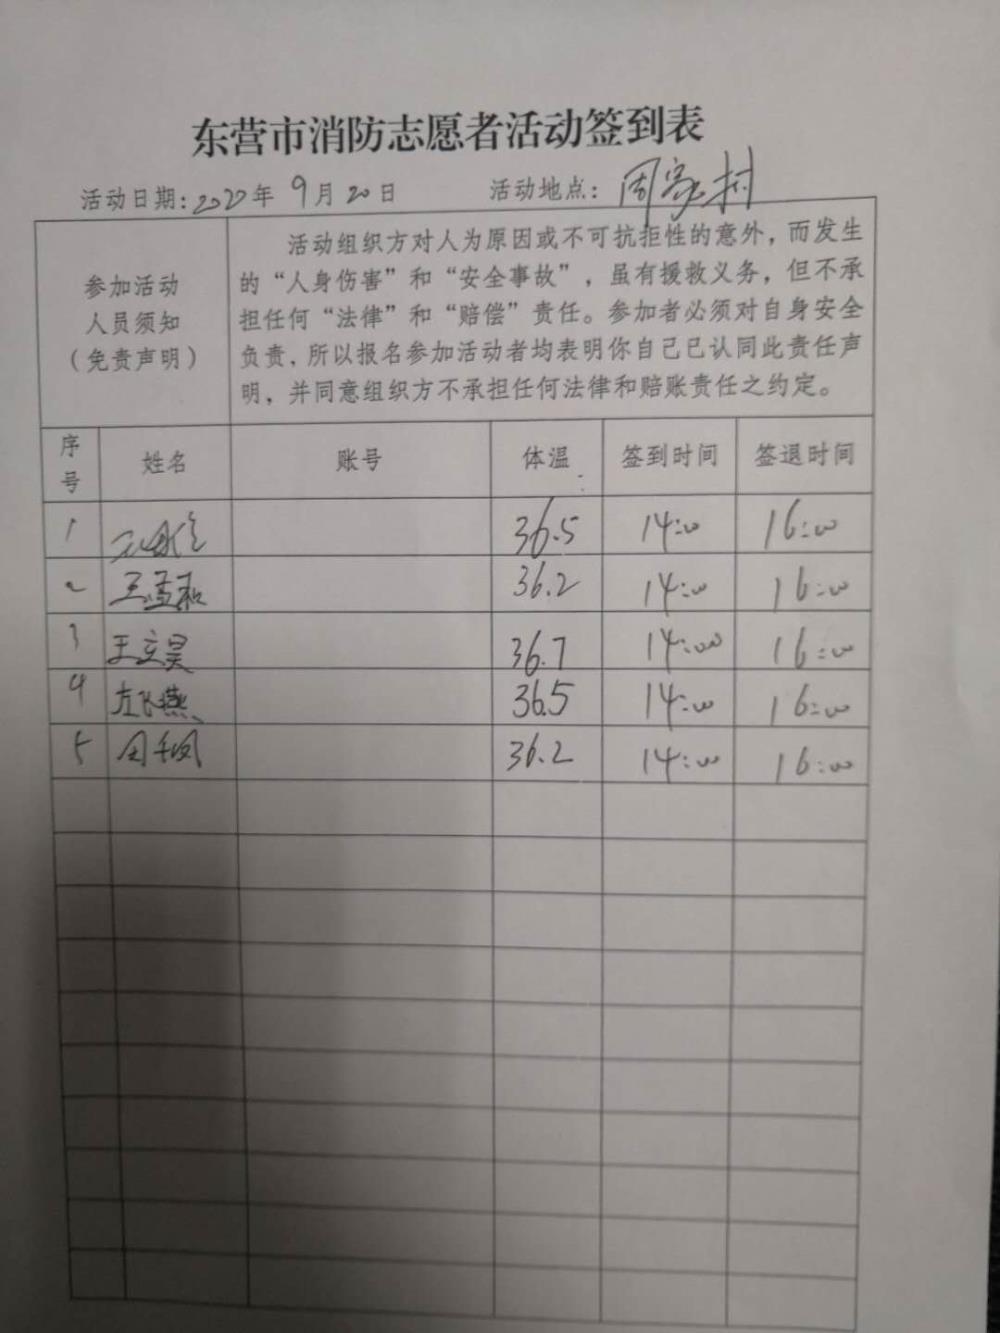 东营市消防志愿者活动签到表
活动日期:2020年 9月20日 活动地点:周家村
参加活动
人员须知
（免责声明）
活动组织方对人为原因或不可抗拒性的意外，而发生
的“人身伤害”和“安全事故”，虽有援救义务，但不承
担任何“法律”和“赔偿”责任。参加者必须对自身安全
负责，所以报名参加活动者均表明你自己已认同此责任声
明，并同意组织方不承担任何法律和赔账责任之约定。
序号 姓名 账号 体温 签到时间 签退时间
1 36.5 14:00 16:00
2 王孟和 36.2 14:00 16:00
3 王立昊 36.7 14:00 16:00
4 左飞燕 36.5 14:00 16:00
5 36.2 14:00 16:00